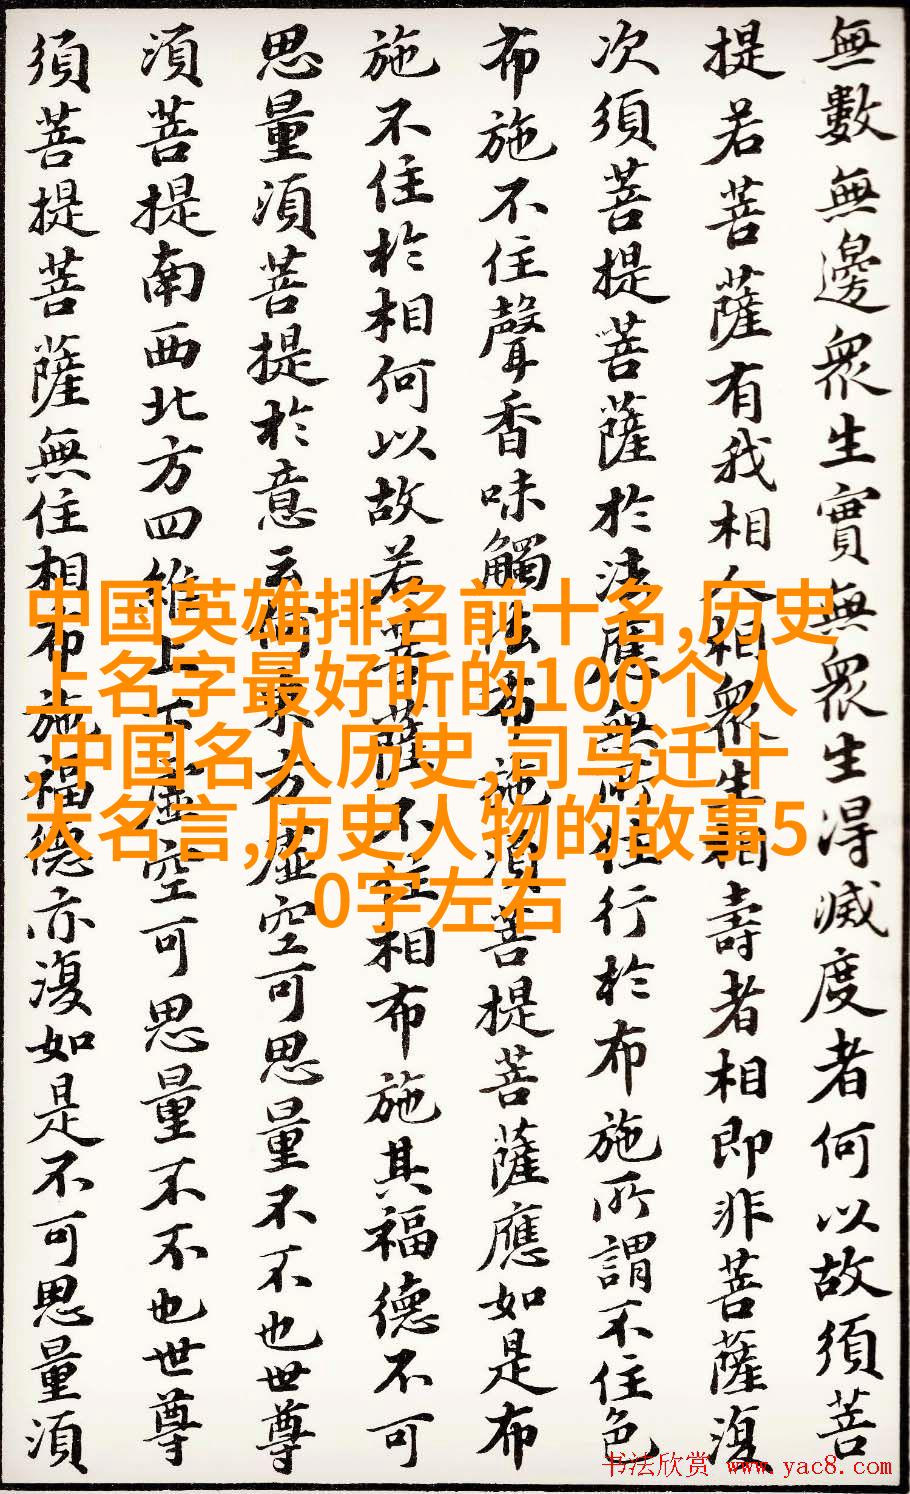 無數無邊衆生實無衆生得滅度者何以故須菩
提若菩薩有我相人相衆生相壽者相即非菩薩復
次須菩提菩薩於法應無所住行於布施所謂不住色
布施不住聲香味觸法布施須菩提菩薩應如是布
施不住於相何以故若菩薩不住相布施其福德不可
思量須菩提於意云何東方虛空可思量不不也世尊
須菩提南西北方四維上下虛空可思量不不也世尊
須菩提菩薩無住相布施福德亦復如是不可思量須
中国英雄排名前十名,历史
上名字最好听的100个人
,中国名人历史,司马迁十
大名言,历史人物的故事5
0字左右
书法欣赏 www.yac8.com